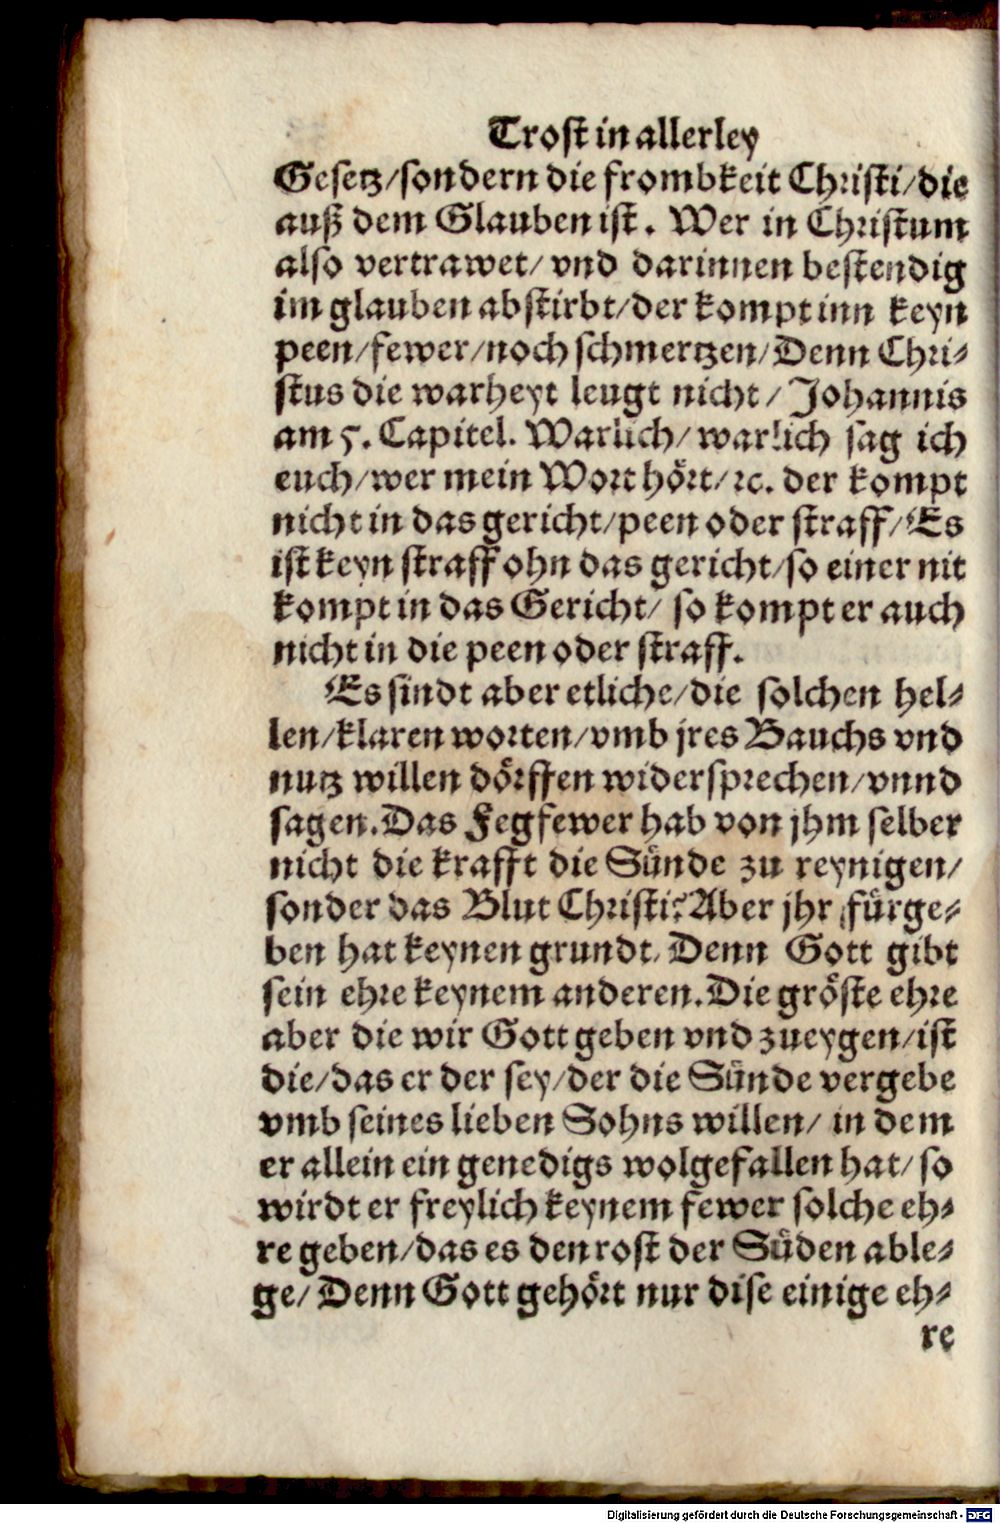 Trost in allerley
Gesetz/sondern die frombkeit Christi/die
auß dem Glauben ist. Wer in Christum
also vertrawet/ vnd darinnen bestendig
im glauben abstirbt/der kompt inn keyn
peen/fewer/noch schmertzen/Denn Chri-
stus die warheyt leugt nicht/ Johannis
am 5. Capitel. Warlich/ warlich sag ich
euch/wer mein Wort hört/ ꝛc. der kompt
nicht in das gericht/peen oder straff/Es
ist keyn straff ohn das gericht/so einer nit
kompt in das Gericht/ so kompt er auch
nicht in die peen oder straff.
Es sindt aber etliche/die solchen hel-
len/klaren worten/vmb jres Bauchs vnd
nutz willen dörffen widersprechen/vnnd
sagen. Das Fegfewer hab von jhm selber
nicht die krafft die Sünde zu reynigen/
sonder das Blut Christi? Aber jhr fürge-
ben hat keynen grundt. Denn Gott gibt
sein ehre keynem anderen. Die gröste ehre
aber die wir Gott geben vnd zueygen/ist
die/das er der sey/der die Sünde vergebe
vmb seines lieben Sohns willen/ in dem
er allein ein genedigs wolgefallen hat/ so
wirdt er freylich keynem fewer solche eh-
re geben/das es den rost der Süden able-
ge/ Denn Gott gehört nur dise einige eh-
re
Digitalisierung gefördert durch die Deutsche Forschungsgemeinschaft - DFG